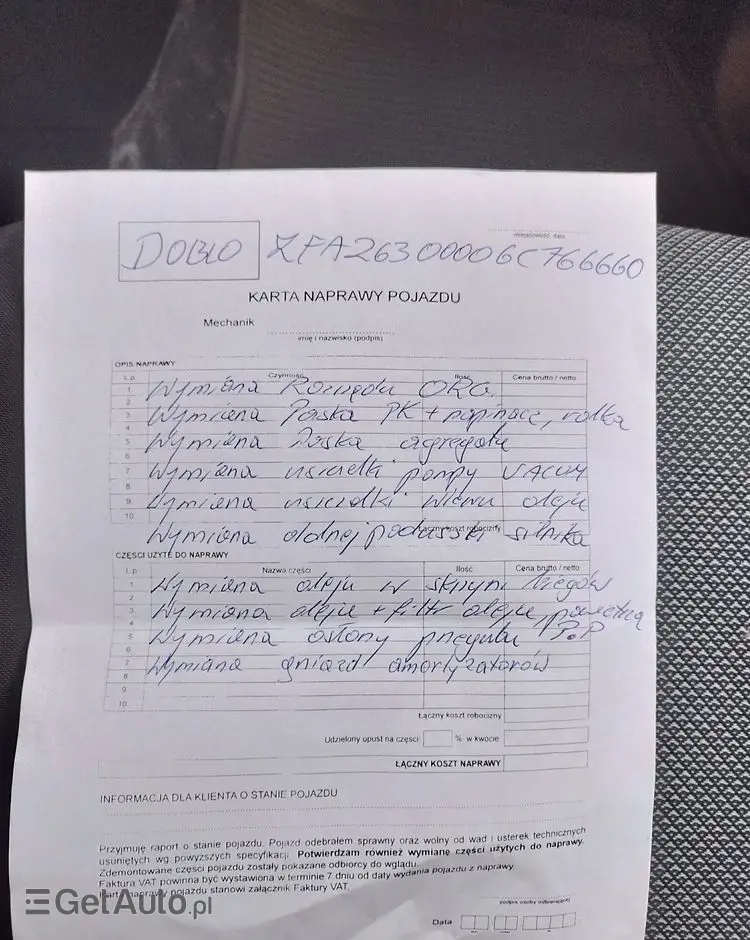 miejscowość, data
DOBLO ZFA26300006C766660
KARTA NAPRAWY POJAZDU
Mechanik
imię i nazwisko (podpis)
OPIS NAPRAWY
Lp. Czynność Ilość Cena brutto / netto
1 Wymiana Rozrządu ORG.
2
3 Wymiana Paska PK + napinacz, rolka
4
5 Wymiana Paska agregatu
6
7 Wymiana uszczelki pompy VACUM
8
9. Wymiana uszczelki wlewu oleju
10
Łączny koszt robocizny
Wymiana dolnej poduszki silnika
CZĘŚCI UŻYTE DO NAPRAWY
Lp. Nazwa części Ilość Cena brutto / netto
1 Wymiana oleju w skrzyni biegów
2
3 Wymiana oleju + filtr oleju, powietrza
4
5 Wymiana osłony przegubu P.P
6
7 Wymiana gniazd amortyzatorów
8
9
10
Łączny koszt robocizny
Udzielony upust na części % w kwocie
ŁĄCZNY KOSZT NAPRAWY
INFORMACJA DLA KLIENTA O STANIE POJAZDU
Przyjmuję raport o stanie pojazdu. Pojazd odebrałem sprawny oraz wolny od wad i usterek technicznych
usuniętych wg powyższych specyfikacji. Potwierdzam również wymianę części użytych do naprawy.
Zdemontowane części pojazdu zostały pokazane odbiorcy do wglądu.
Faktura VAT powinna być wystawiona w terminie 7 dni od daty wydania pojazdu z naprawy.
Karta naprawy pojazdu stanowi załącznik Faktury VAT.
podpis osoby odbierającej
Data
GetAuto.pl